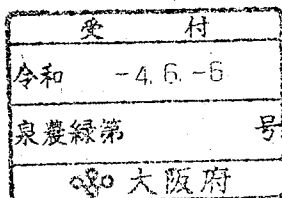 受 付
令和 -4.6.-6
泉農緑第 号
大阪府